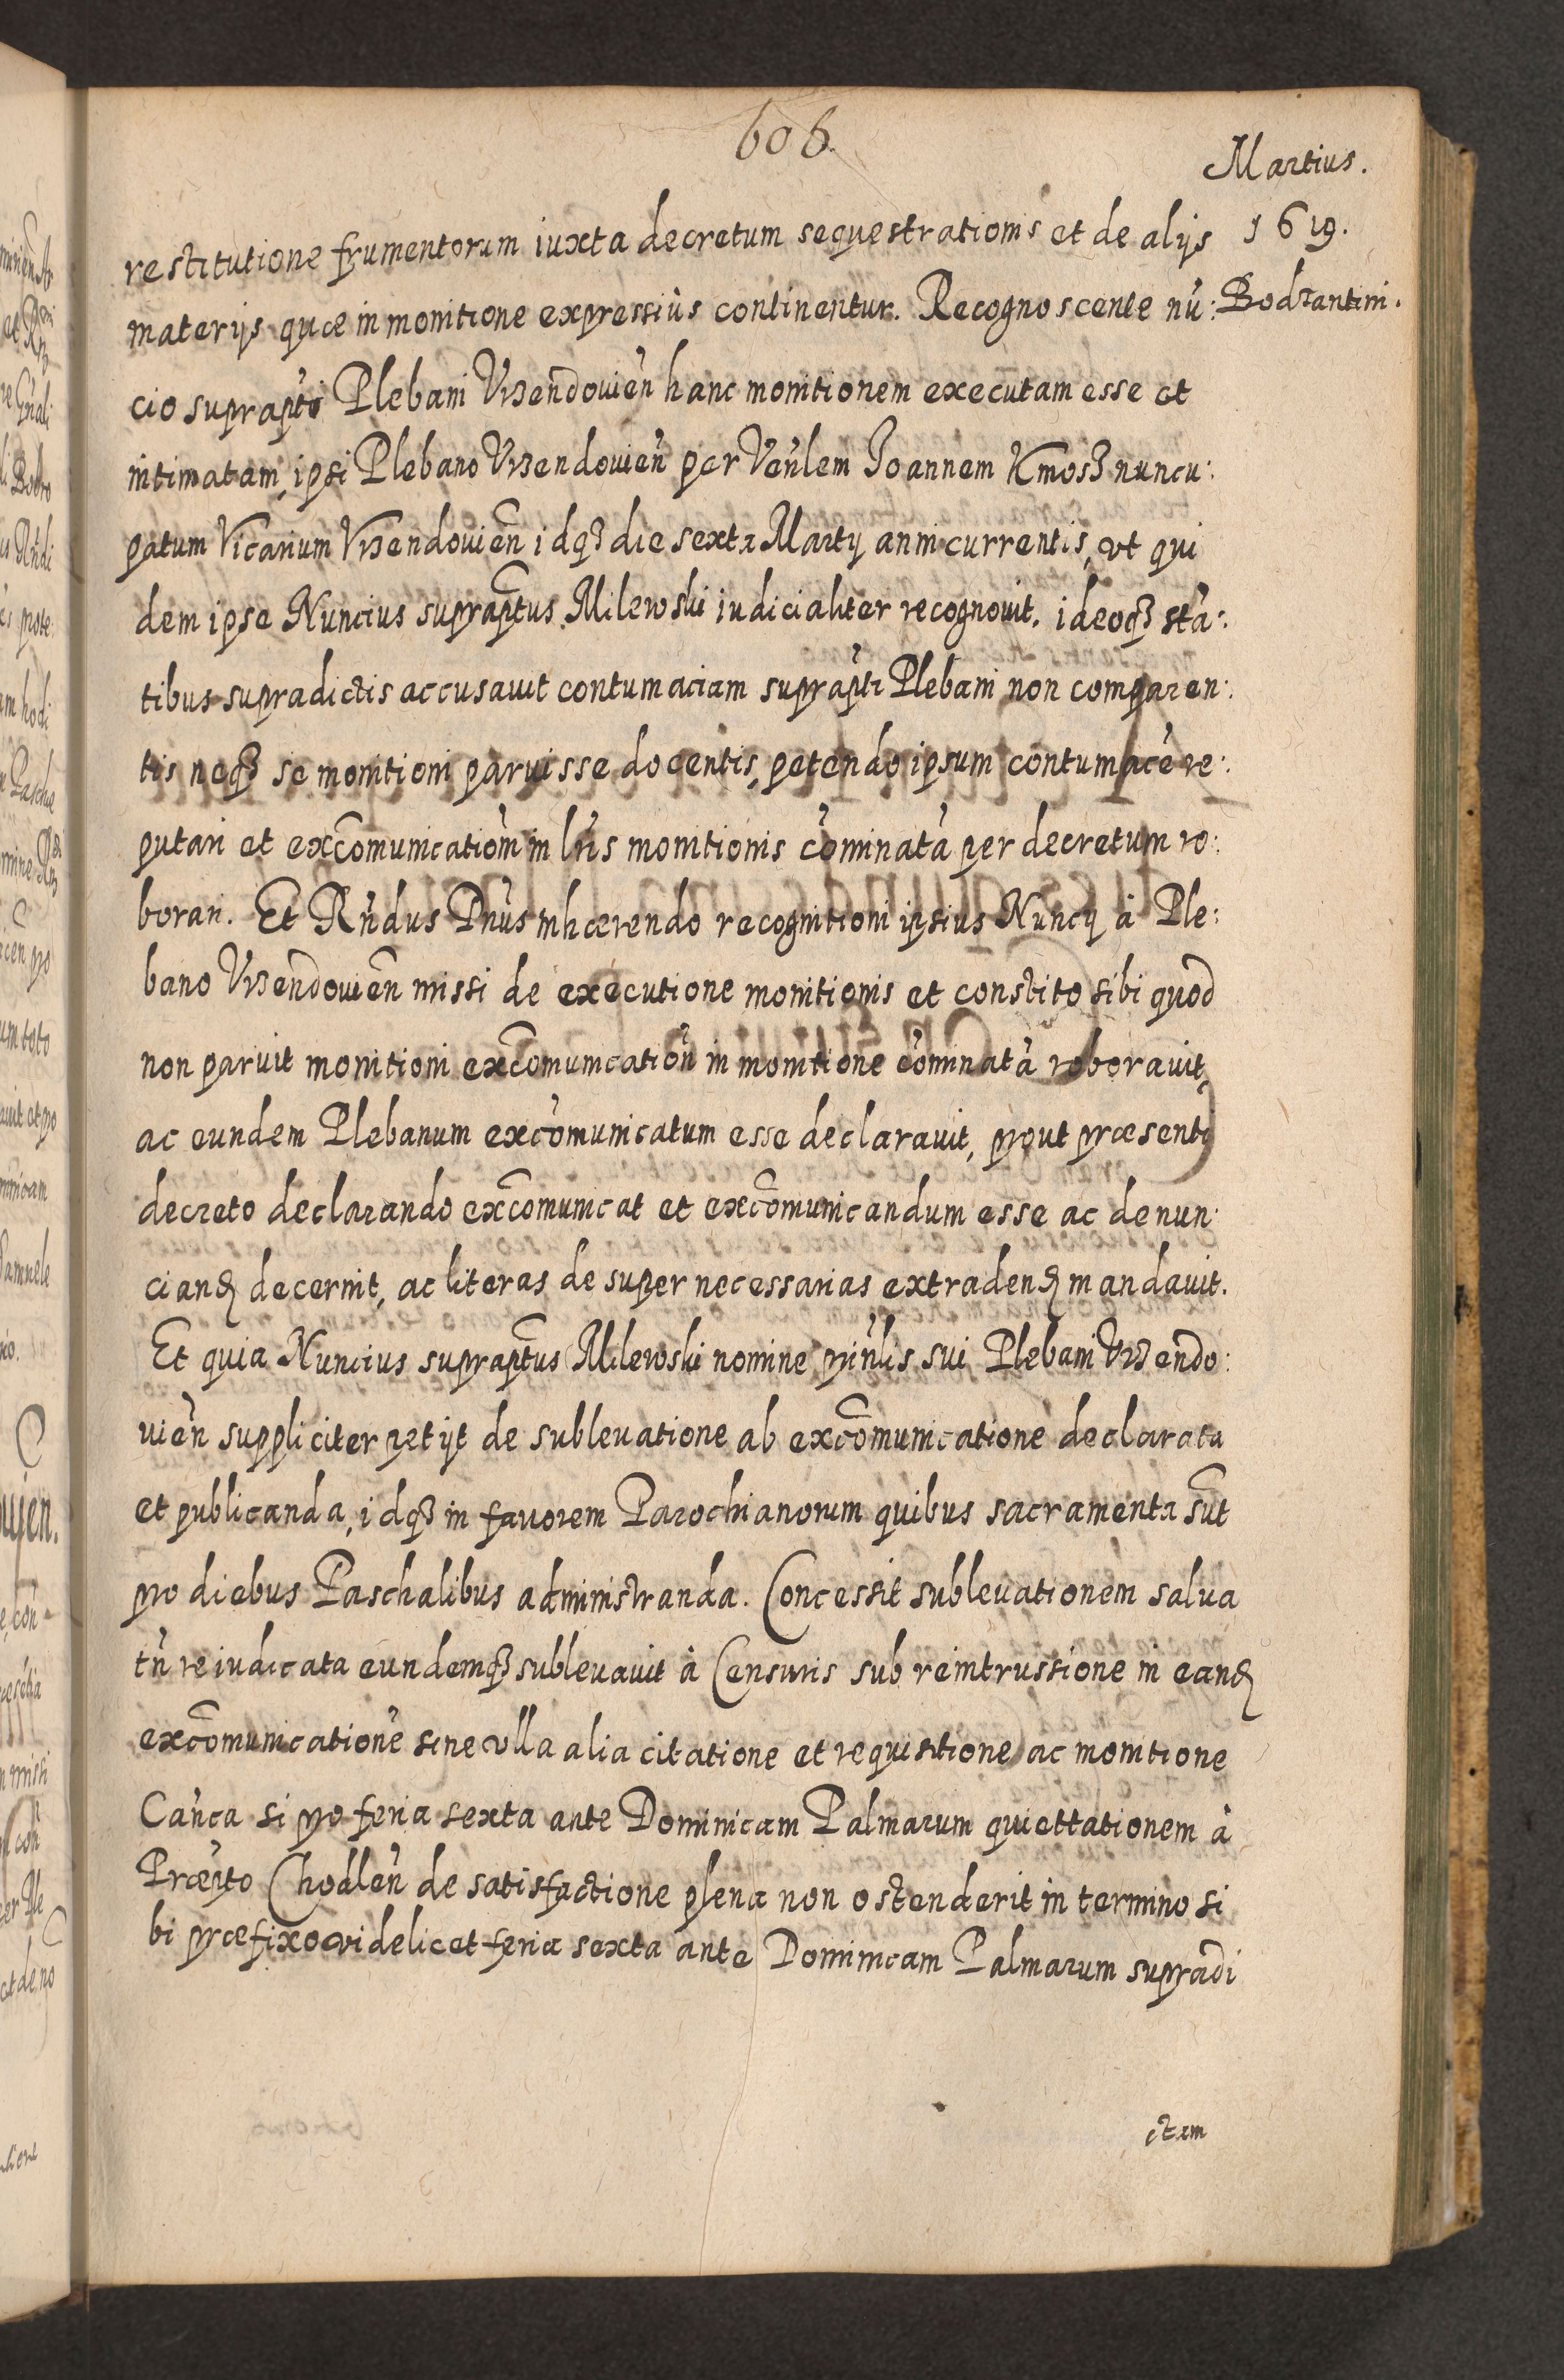 606.
Martius.
1619.
Bodzantini.
restitutione frumentorum iuxta decretum sequestrationis et de alijs
materijs quæ in monitione expressiùs continentur. Recognoscente nù:
cio suprapti Plebani Vrzendouień hanc monitionem executam esse et
intimatam, ipsi Plebano Vrzendouień per Veńlem Joannem Kmosz nuncu:
patum Vicarium Vrzendouień idqȝ die sexta Martij anni currentis, vt qui
dem ipse Nuncius supraptus Milewski iudicialiter recognouit. ideoqȝ stà:
tibus supradictis accusauit contumaciam suprapti Plebani non comparen:
tis neqȝ se monitioni paruisse docentis, petendo ipsum contumacē re:
putari et excōmunicationē in lris monitionis cōminatā per decretum ro:
borari. Et Rńdus Dńus inhærendo recognitioni ipsius Nuncij à Ple:
bano Vrzendouień missi de executione monitionis et constito sibi quod
non paruit monitioni excōmunicationē in monitione cōminatā roborauit,
ac eundem Plebanum excōmunicatum esse declarauit, prout præsenti
decreto declarando excōmunicat et excōmunicandum esse ac denun:
ciand decernit, ac literas de super necessarias extradend mandauit.
Et quia Nuncius supraptus Milewski nomine prińlis sui Plebani Vrzendo:
uień suppliciter petijt de subleuatione ab excōmunicatione declarata
et publicanda, idqȝ in fauorem Parochianorum quibus sacramenta sūt
pro diebus Paschalibus administranda. Concessit subleuationem salua
tń re iudicata eundemqȝ subleuauit à Censuris sub reintrussione in eand
excōmunicationē sine vlla alia citatione et requisitione ac monitione
Cańca si pro feria sexta ante Dominicam Palmarum quiettationem à
Præpto Chodleń de satisfactione plena non ostenderit in termino si
bi præfixo videlicet feria sexta ante Dominicam Palmarum supradi
ctam